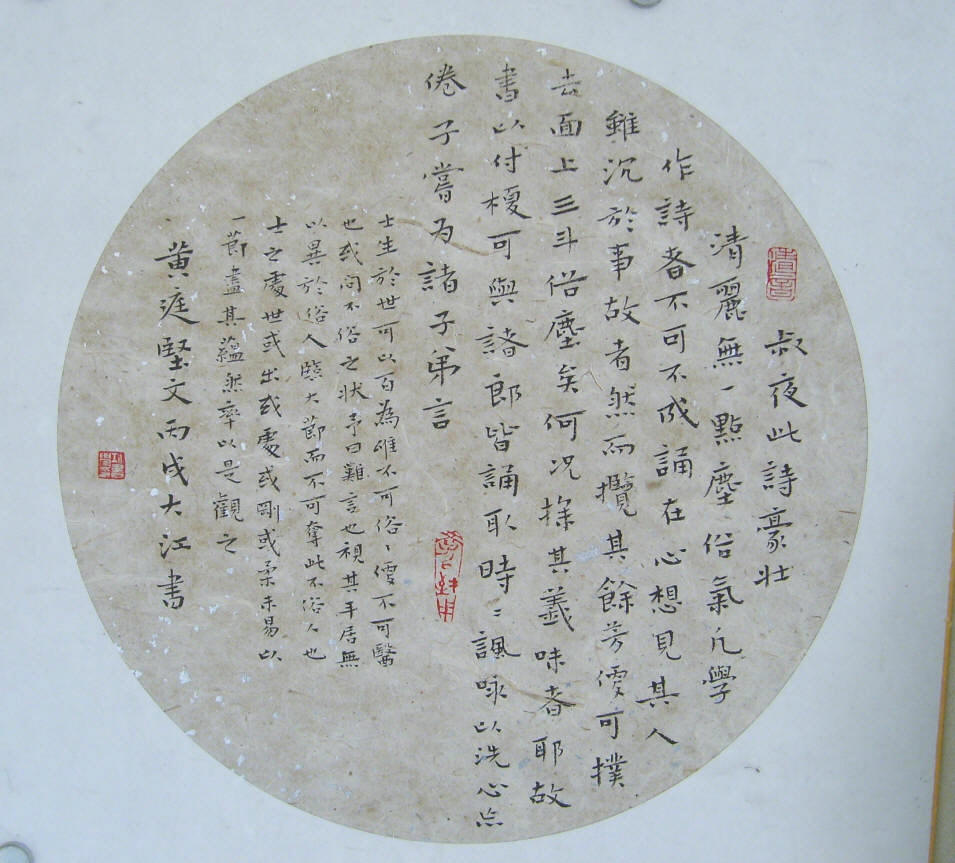 叔夜此詩豪壯
清麗無一點塵俗氣凡學
作詩者不可不成誦在心想見其人
雖沉於事故者然而攬其餘芳便可撲
去面上三斗俗塵矣何況探其義味者耶故
書以付榎可與諸郎皆誦取時〻諷咏以洗心忘
倦予嘗為諸子弟言
士生於世可以百為唯不可俗〻便不可醫
也或問不俗之狀予曰難言也視其平居無
以異於俗人臨大節而不可奪此不俗人也
士之處世或出或處或剛或柔未易以
一節盡其蘊然率以是觀之
黃庭堅文丙戌大江書